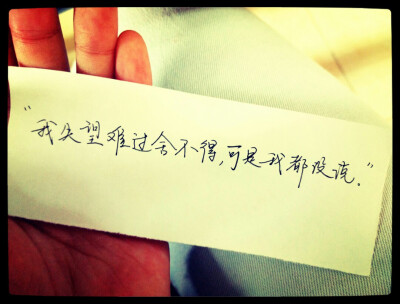 “我失望难过舍不得,可是我都没说.”